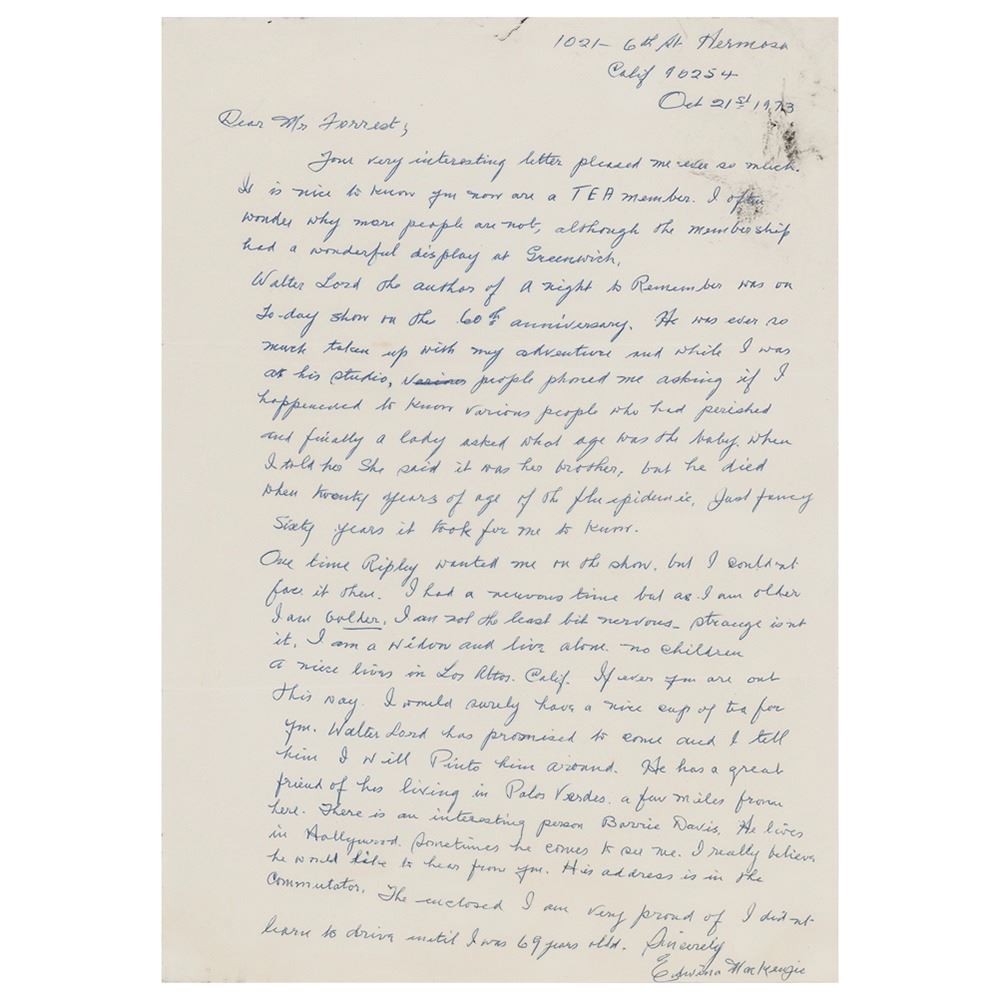 1021 - 6th St Hermosa
Calif 90254
Oct 21st 1973
Dear Mr Forrest,
Your very interesting letter pleased me ever so much.
It is nice to know you now are a TEA member. I often
wonder why more people are not, although the membership
had a wonderful display at Greenwich.
Walter Lord the author of A night to Remember was on
To-day show on the 60th anniversary. He was ever so
much taken up with my adventure and while I was
at his studio, various people phoned me asking if I
happeneded to know various people who had perished
and finally a lady asked what age was the baby. when
I told her She said it was her brother, but he died
when twenty years of age of the flu epidemic. Just fancy
Sixty years it took for me to know.
One time Ripley wanted me on the show. but I couldnt
face it then. I had a nervous time but as I am older
I am bolder. I am not the least bit nervous - strange isnt
it. I am a widow and live alone. no children
a niece lives in Los Altos. Calif. If ever you are out
this way. I would surely have a nice cup of tea for
you. Walter Lord has promised to come and I tell
him I will Pinto him around. He has a great
friend of his living in Palos Verdes. a few miles from
here. There is an interesting person Barrie Davis. He lives
in Hollywood. Sometimes he comes to see me. I really believe
he would like to hear from you. His address is in the
Commutator. The enclosed I am very proud of I didnt
learn to drive until I was 69 years old. Sincerely
Edwina MacKenzie